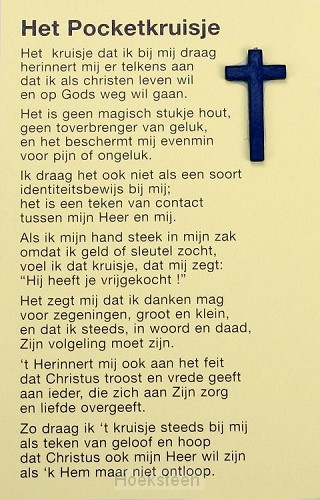 Het Pocketkruisje
Het kruisje dat ik bij mij draag
herinnert mij er telkens aan
dat ik als christen leven wil
en op Gods weg wil gaan.
Het is geen magisch stukje hout,
geen toverbrenger van geluk,
en het beschermt mij evenmin
voor pijn of ongeluk.
Ik draag het ook niet als een soort
identiteitsbewijs bij mij;
het is een teken van contact
tussen mijn Heer en mij.
Als ik mijn hand steek in mijn zak
omdat ik geld of sleutel zocht,
voel ik dat kruisje, dat mij zegt:
“Hij heeft je vrijgekocht !”
Het zegt mij dat ik danken mag
voor zegeningen, groot en klein,
en dat ik steeds, in woord en daad,
Zijn volgeling moet zijn.
‘t Herinnert mij ook aan het feit
dat Christus troost en vrede geeft
aan ieder, die zich aan Zijn zorg
en liefde overgeeft.
Zo draag ik ‘t kruisje steeds bij mij
als teken van geloof en hoop
dat Christus ook mijn Heer wil zijn
als ‘k Hem maar niet ontloop.
Hoeksteen